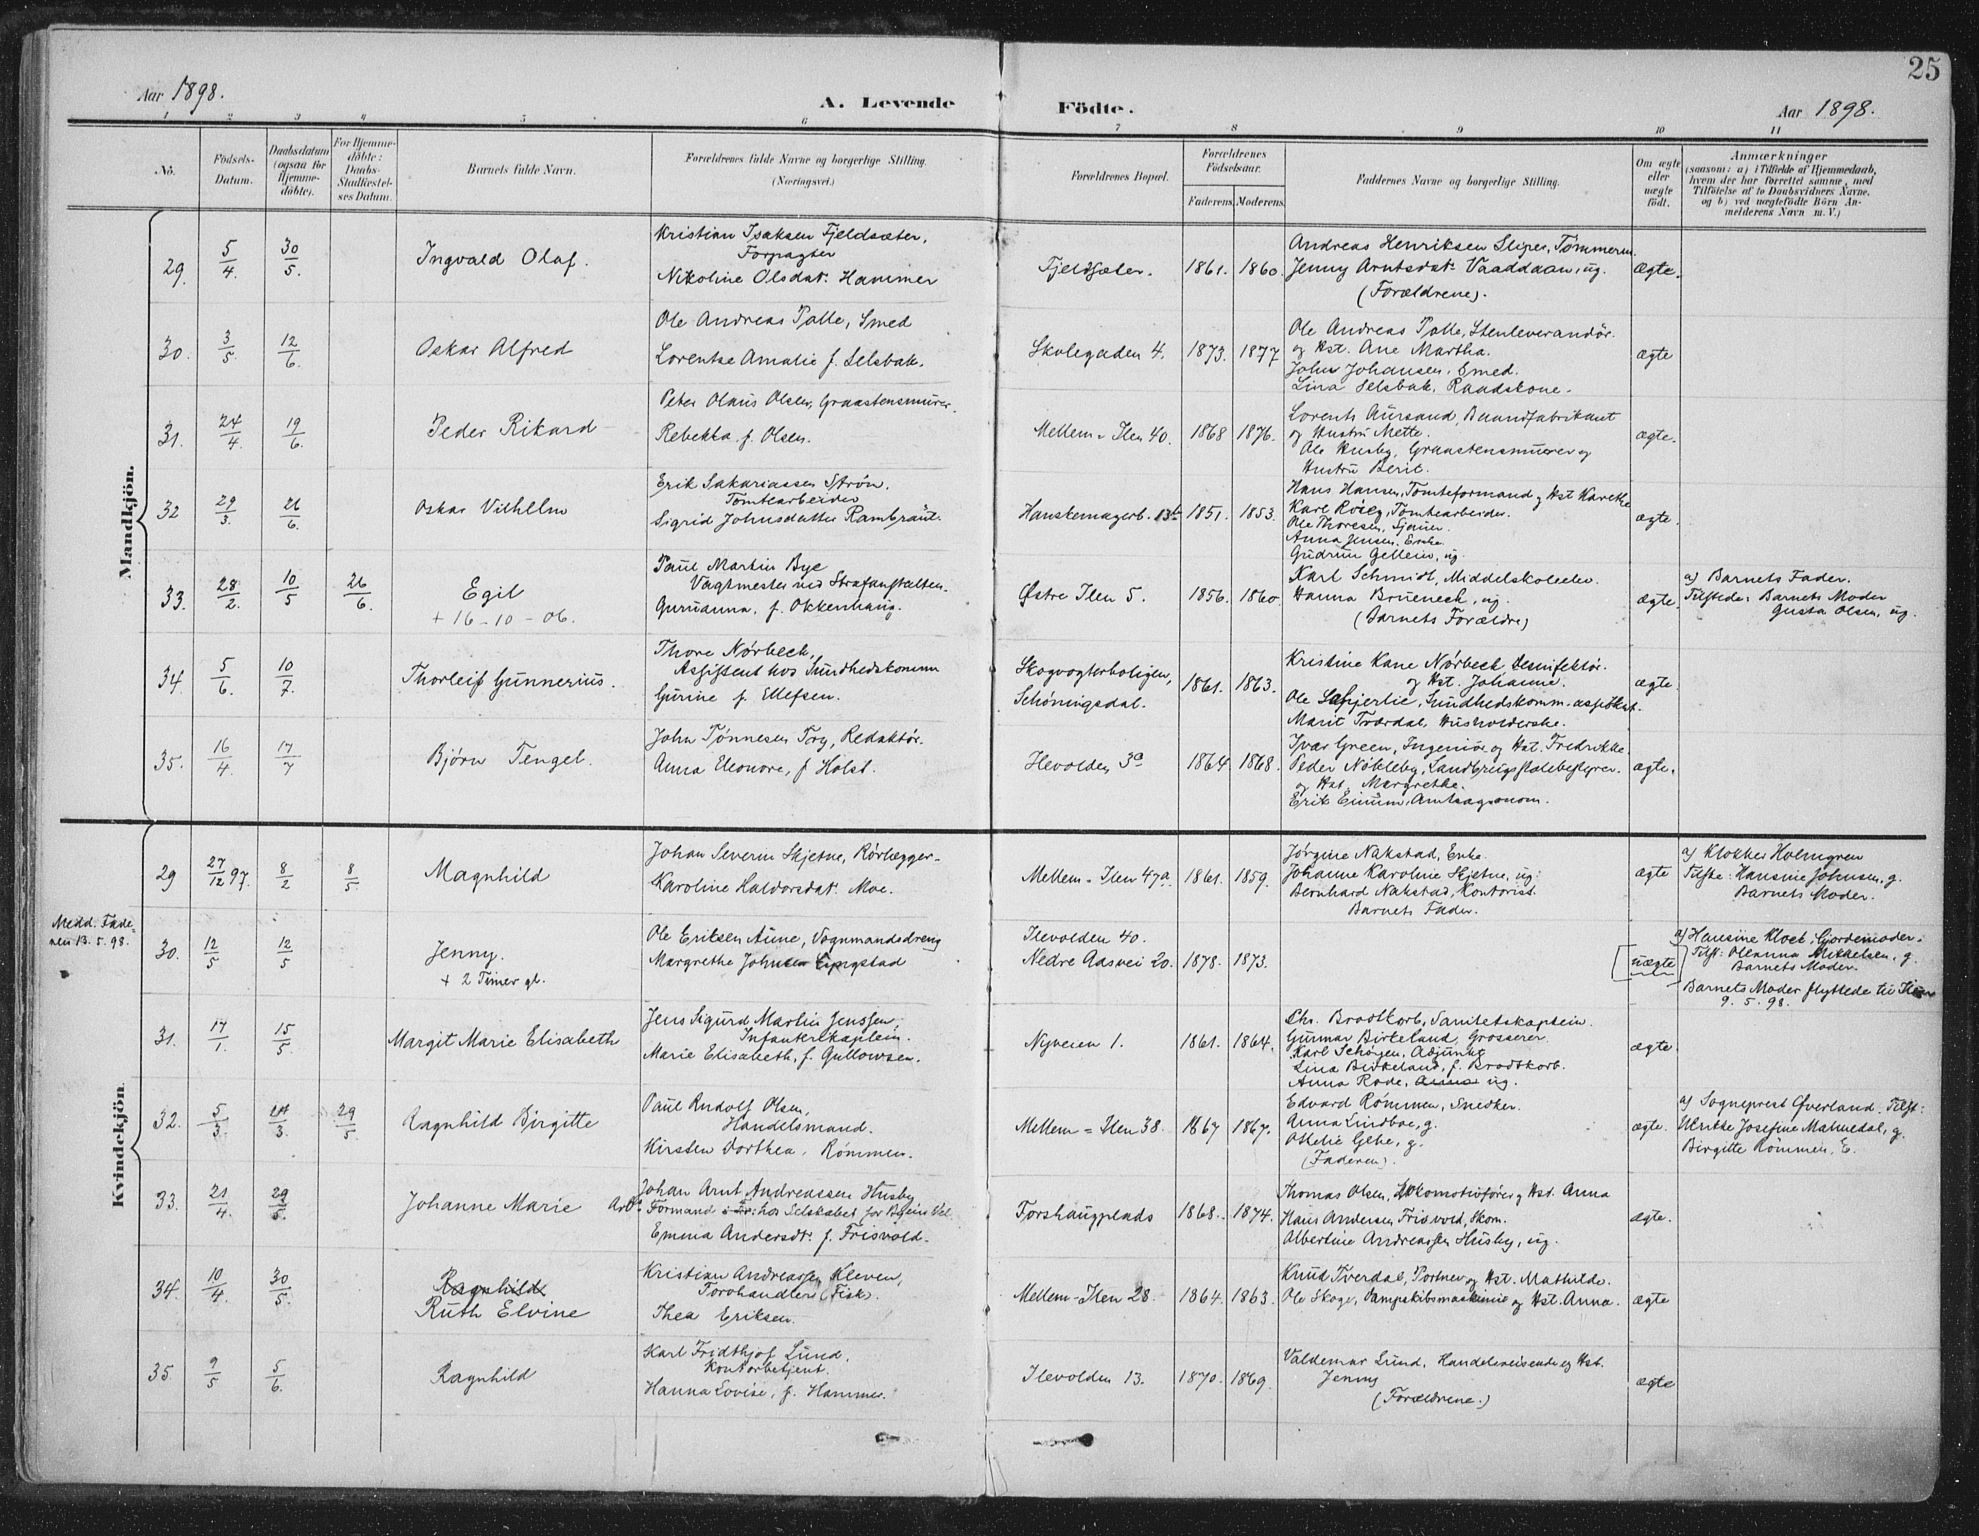 25
Aar 1898.
A. Levende Födte.
Aar 1898.
1 2 3 4 5 6 7 8 9 10 11
No.
Födsels-Datum.
Daabsdatum (ogsaa for Hjemme-döbte).
For Hjemme-döbte: Daabs-Stadfæstel-ses Datum.
Barnets fulde Navn.
Forældrenes fulde Navne og borgerlige Stilling.
(Næringsvei.)
Forældrenes Bopæl.
Forældrenes Födselsaar.
Faderens. Moderens.
Faddernes Navne og borgerlige Stilling.
Om ægte eller uægte födt.
Anmærkninger
(saasom: a) i Tilfælde af Hjemmedaab,
hvem der har forrettet samme, med
Tilföielse af to Daabsvidners Navne,
og b) ved uægtefödte Börn An-
melderens Navn m. V.)
Mandkjön.
29. 5/4. 30/5. Ingvald Olaf.
Kristian Isaksen Fjeldsæter,
Forpagter
Nikoline Olsdat. Hammer
Fjeldsæter. 1861. 1860.
Andreas Henriksen Sliper, Tømmerm.
Jenny Arntsdat. Vaaddaan, ug.
(Forældrene).
ægte.
30. 3/5. 12/6. Oskar Alfred
Ole Andreas Palle, Smed
Lorentse Amalie f. Selsbak.
Skolegaden 4. 1873. 1877
Ole Andreas Palle, Stenleverandør.
og Hst. Ane Martha.
John Johansen, Smed.
Lina Selsbak,
ægte
31. 24/4. 19/6. Peder Rikard
Peter Olaus Olsen, Graastensmurer.
Rebekka f. Olsen.
Mellem-Ilen 40. 1868 1876.
Lorents Aursand,
og Hustru Mette.
Ole Husby, Graastensmurer og
Hustru Berit.
ægte.
32 29/3. 26/6. Oskar Vilhelm
Erik Sakariassen Strøm.
Tomtearbeider
Sigrid Johnsdatter Rambraut.
Hanskemagerb. 13b 1851. 1853.
Hans Hansen, Tomteformand og Hst Karethe
Karl Röseg, Tomtearbeider.
Ole Thoresen, Sjauer.
Anna Jensen, Enke.
Gudrun Gellein, ug.
ægte.
33. 28/2. 10/5 26/6. Egil
+ 16-10-06.
Paul Martin Bye
Vagtmester ved Strafanstalten.
Gurianna, f. Okkenhaug.
Østre Ilen 5. 1856. 1860.
Karl Schmidt, Middelskoleelev.
Hanna Bruenech, ug.
(Barnets Forældre)
ægte.
a) Barnets Fader.
Tilstede: Barnets Moder
Gusta Olsen, ug.
34. 5/6. 10/7. Thorleif Gunnerius.
Thore Nørbech,
Assistent hos Sundhedskomm
Gurine f. Ellefsen.
Skogvogterboligen,
Schøningsdal. 1861. 1863.
Kristine Kane Nørbech Desinfektør.
og Hst. Johanne.
Ole Selfjerlie, Sundhedskomm.
Marit Trærdal, Husholderske.
ægte.
35. 16/4. 17/7 Bjørn Tengel.
John Tønnesen Foy, Redaktør.
Anna Eleonore, f Holst.
Ilevolden 3a 1864 1868.
Ivar Green, Ingeniør og Hst. Fredrikke.
Peder Nökleby, Landbrugsskolebestyrer.
og Hst. Margrethe.
Erik Einum, Amtsagronom.
ægte.
Kvindekjön.
29 27/12 97. 8/2 8/5 Magnhild
Johan Severin Skjetne, Rørlægger.
Karoline Haldorsdat. Moe.
Mellem-Ilen 47a. 1861. 1859.
Jørgine Nakstad, Enke.
Johanne Karoline Skjetne, ug.
Bernhard Nakstad, Kontorist.
Barnets Fader.
ægte
a) Klokker Holmgren
Tilste: Hansine Johnsen, g.
Barnets Moder.
Medd. Fade-
nen 13.5.98.
30. 12/5 12/5 Jenny.
+ 2 Timer gl.
Ole Eriksen Aune, Vognmandsdreng
Margrethe Johnsen Engstad
Ilevolden 40.
Nedre Aasvei 20. 1878. 1873.
uægte
a) Hansine Kloch, Gjordemoder.
Tilst: Oleanna Mikkelsen, g.
Barnets Moder.
Barnets Moder flyttede til Ilen
9.5.98.
31. 17/1. 15/5. Margit Marie Elisabeth
Jens Sigurd Martin Jenssen,
Infanterikaptein.
Marie Elisabeth, f. Gullowsen.
Nyveien 1. 1861. 1864.
Chr. Brodtkorb, Sanitetskaptein.
Gunnar Birkeland, Grosserer.
Karl Schøyen, Adjunkt
Lina Birkeland, f. Brodtkorb.
Anna Rode, ug.
ægte
32. 5/3. 24/3. 29/5 Ragnhild Birgitte
Paul Rudolf Olsen,
Handelsmand.
Kirsten Dorthea, Rømmen.
Mellem-Ilen 38. 1867 1867.
Edvard Rømmen, Snedker.
Anna Lindboe, g.
Othelie Gebe, g.
(Faderen).
ægte.
a) Sogneprest Øverland. Tilst:
Ulrikke Josefine Malmedal, g.
Birgitte Rømmen, E.
33. 21/4. 29/5. Johanne Marie
Johan Arnt Andreassen Husby
Arb. Formand hos Selskabet for Byens Vel
Emma Andersdt. f. Frisvold.
Forshaugplads 1868. 1874.
Thomas Olsen, Lokomotivfører og Hst. Anna
Hans Andersen Frisvold, Skom.
Albertine Andreassen Husby, ug.
ægte.
34. 10/4. 30/5. Ragnhild
Ruth Elvine
Kristian Andreassen Kleven,
Forhandler (Fisk).
Thea Eriksen.
Mellem-Ilen 28. 1864. 1863.
Knud Tverdal, Portner og Hst. Mathilde.
Ole Skoge, Dampskibsmaskinist og Hst. Anna.
ægte
35. 9/5 5/6. Ragnhild
Karl Fridthjof Lund,
Kontorbetjent.
Hanna Lovise, f. Hammer.
Ilevolden 13. 1870. 1869.
Valdemar Lund, Handelsreisende og Hst.
Jenny
(Forældrene.)
ægte